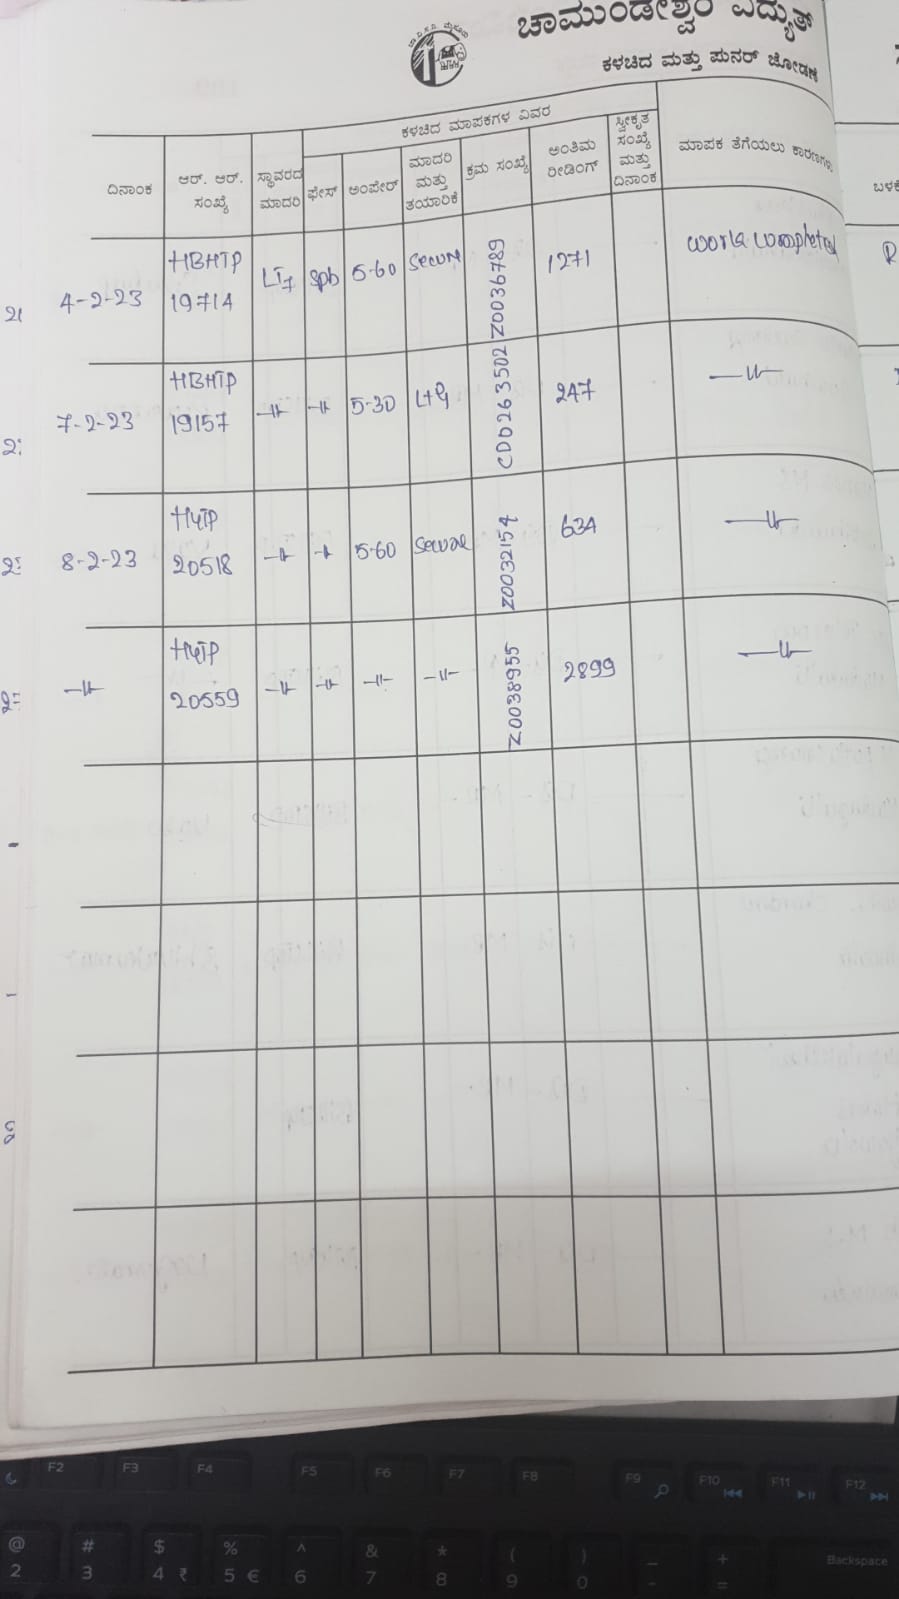 ಚಾಮುಂಡೇಶ್ವರಿ ವಿದ್ಯುತ್
ಕಳಚಿದ ಮತ್ತು ಪುನರ್ ಜೋಡಣೆ
ಕಳಚಿದ ಮಾಪಕಗಳ ವಿವರ
ದಿನಾಂಕ ಆರ್. ಆರ್. ಸಂಖ್ಯೆ ಸ್ಥಾವರದ ಮಾದರಿ ಫೇಸ್ ಅಂಪೇರ್ ಮಾದರಿ ಮತ್ತು ತಯಾರಿಕೆ ಕ್ರಮ ಸಂಖ್ಯೆ ಅಂತಿಮ ರೀಡಿಂಗ್ ಸ್ವೀಕೃತ ಸಂಖ್ಯೆ ಮತ್ತು ದಿನಾಂಕ ಮಾಪಕ ತೆಗೆಯಲು ಕಾರಣಗಳು
4-2-23 HBHTP 19714 LT7 Sph 5-60 Secure Z0036789 1271 work completed
7-2-23 HBHTP 19157 -11- -11- 5-30 L+G CDD263502 247 -11-
8-2-23 HYTP 20518 -11- -11- 5-60 Secure Z0032154 634 -11-
-11- HYTP 20559 -11- -11- -11- -11- Z0038955 2899 -11-
F2 F3 F4 F5 F6 F7 F8 F9 F10 F11 F12
@ # $ % ^ & * ( ) _ + Backspace
2 3 4 ₹ 5 € 6 7 8 9 0 - =